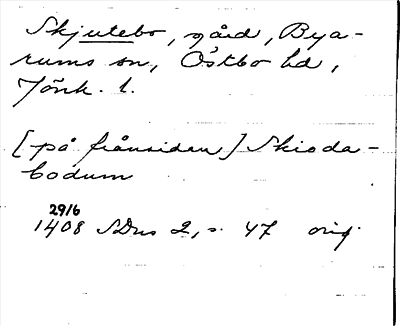 Skjutebo, gård, Bya-
rums sn, Östbo hd,
Jönk. l.
[på frånsidan] Skioda-
bodum
29/6
1408 SDns 2, s. 47 orig.